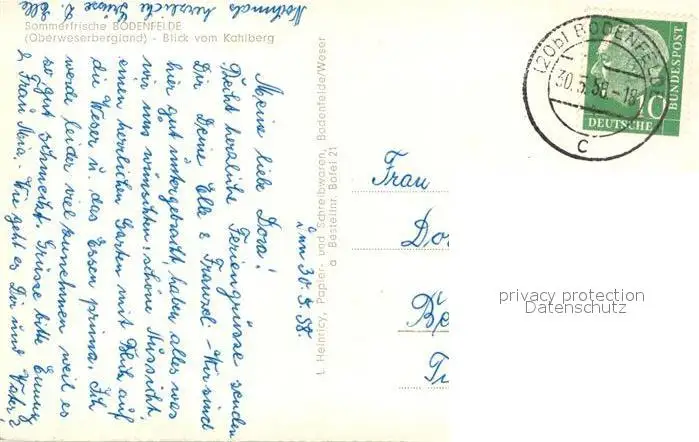 Sommerfrische BODENFELDE
(Oberweserbergland) - Blick vom Kahlberg
Nochmals herzliche Grüsse D. Elle
inn 30.5.58.
Meine liebe Dora!
Recht herzliche Feriengrüsse senden
Dir Deine Elle & Franzel. - Wir sind
hier gut untergebracht, haben alles was
wir uns wünschten: schöne Aussicht,
einen herrlichen Garten mit Blick auf
die Weser u. das Essen prima. Ich
werde leider viel zunehmen weil es
so gut schmeckt. Grüsse bitte Emmy
& Frau Meia. - Wie geht es Dir und Vater?
L. Heinricy, Papier- und Schreibwaren, Bodenfelde/Weser
a Bestellnr. Bofel 21
(20b) BODENFELDE
30.5.58.-18
c
10
DEUTSCHE
BUNDESPOST
Frau
Do
Be
privacy protection
Datenschutz